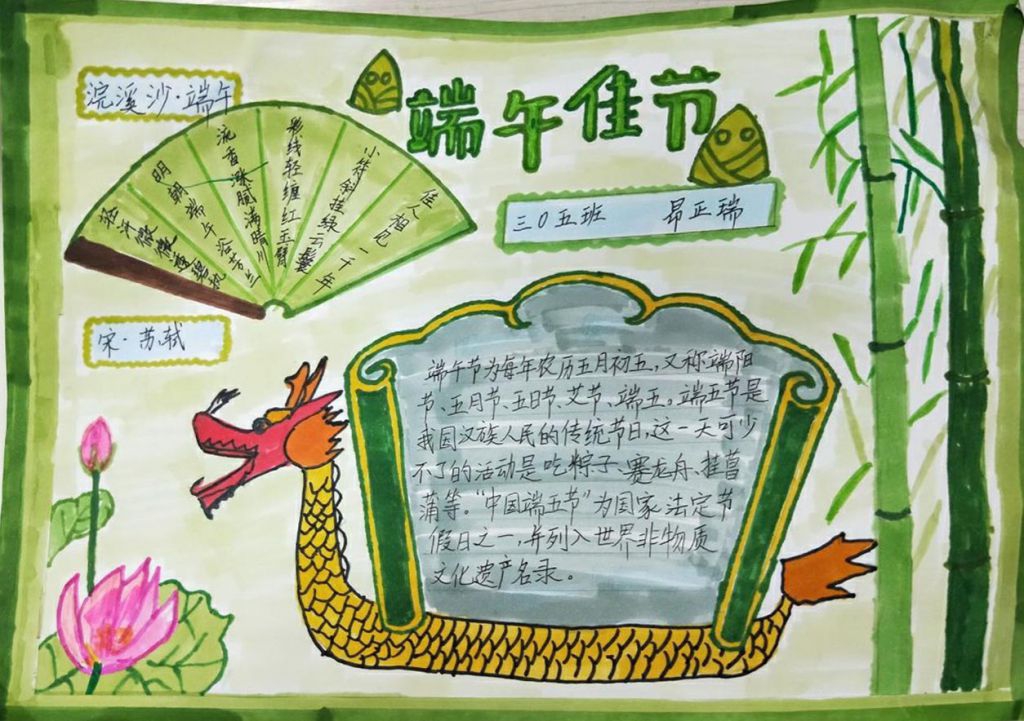 端午佳节
浣溪沙·端午
三〇五班 昂正瑞
轻汗微微透碧纨
明朝端午浴芳兰
流香涨腻满晴川
彩线轻缠红玉臂
小符斜挂绿云鬟
佳人相见一千年
宋·苏轼
端午节为每年农历五月初五,又称端阳
节、五月节、五日节、艾节、端五。端五节是
我国汉族人民的传统节日,这一天可少
不了的活动是吃粽子、赛龙舟、挂菖
蒲等。“中国端五节”为国家法定节
假日之一,并列入世界非物质
文化遗产名录。